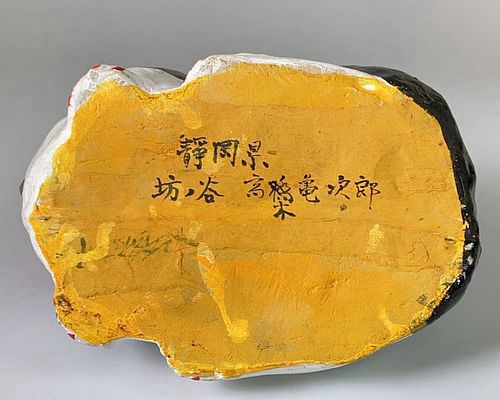 靜岡県
坊ノ谷 高 亀次郎